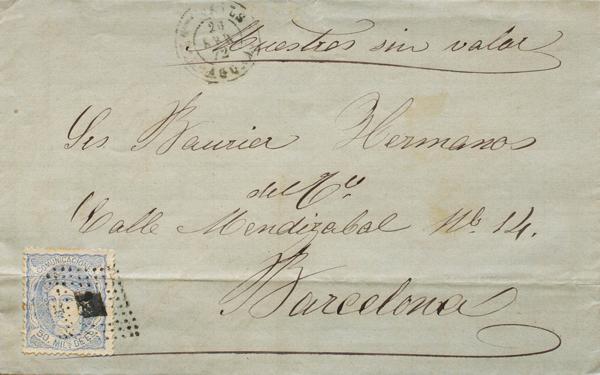 Muestras sin valor
26
72
Srs Baurier Hermanos
del Co.
Calle Mendizabal No. 14.
Barcelona
COMUNICACIONES
50. MILS DE E